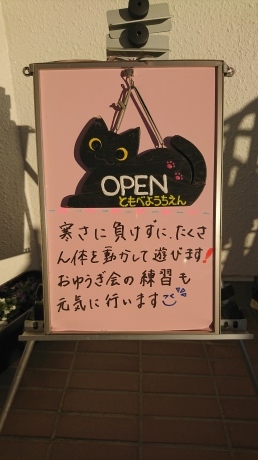 OPEN
ともべようちえん
寒さに負けずに、たくさ
ん体を動かして遊びます!
おゆうぎ会の練習も
元気に行います